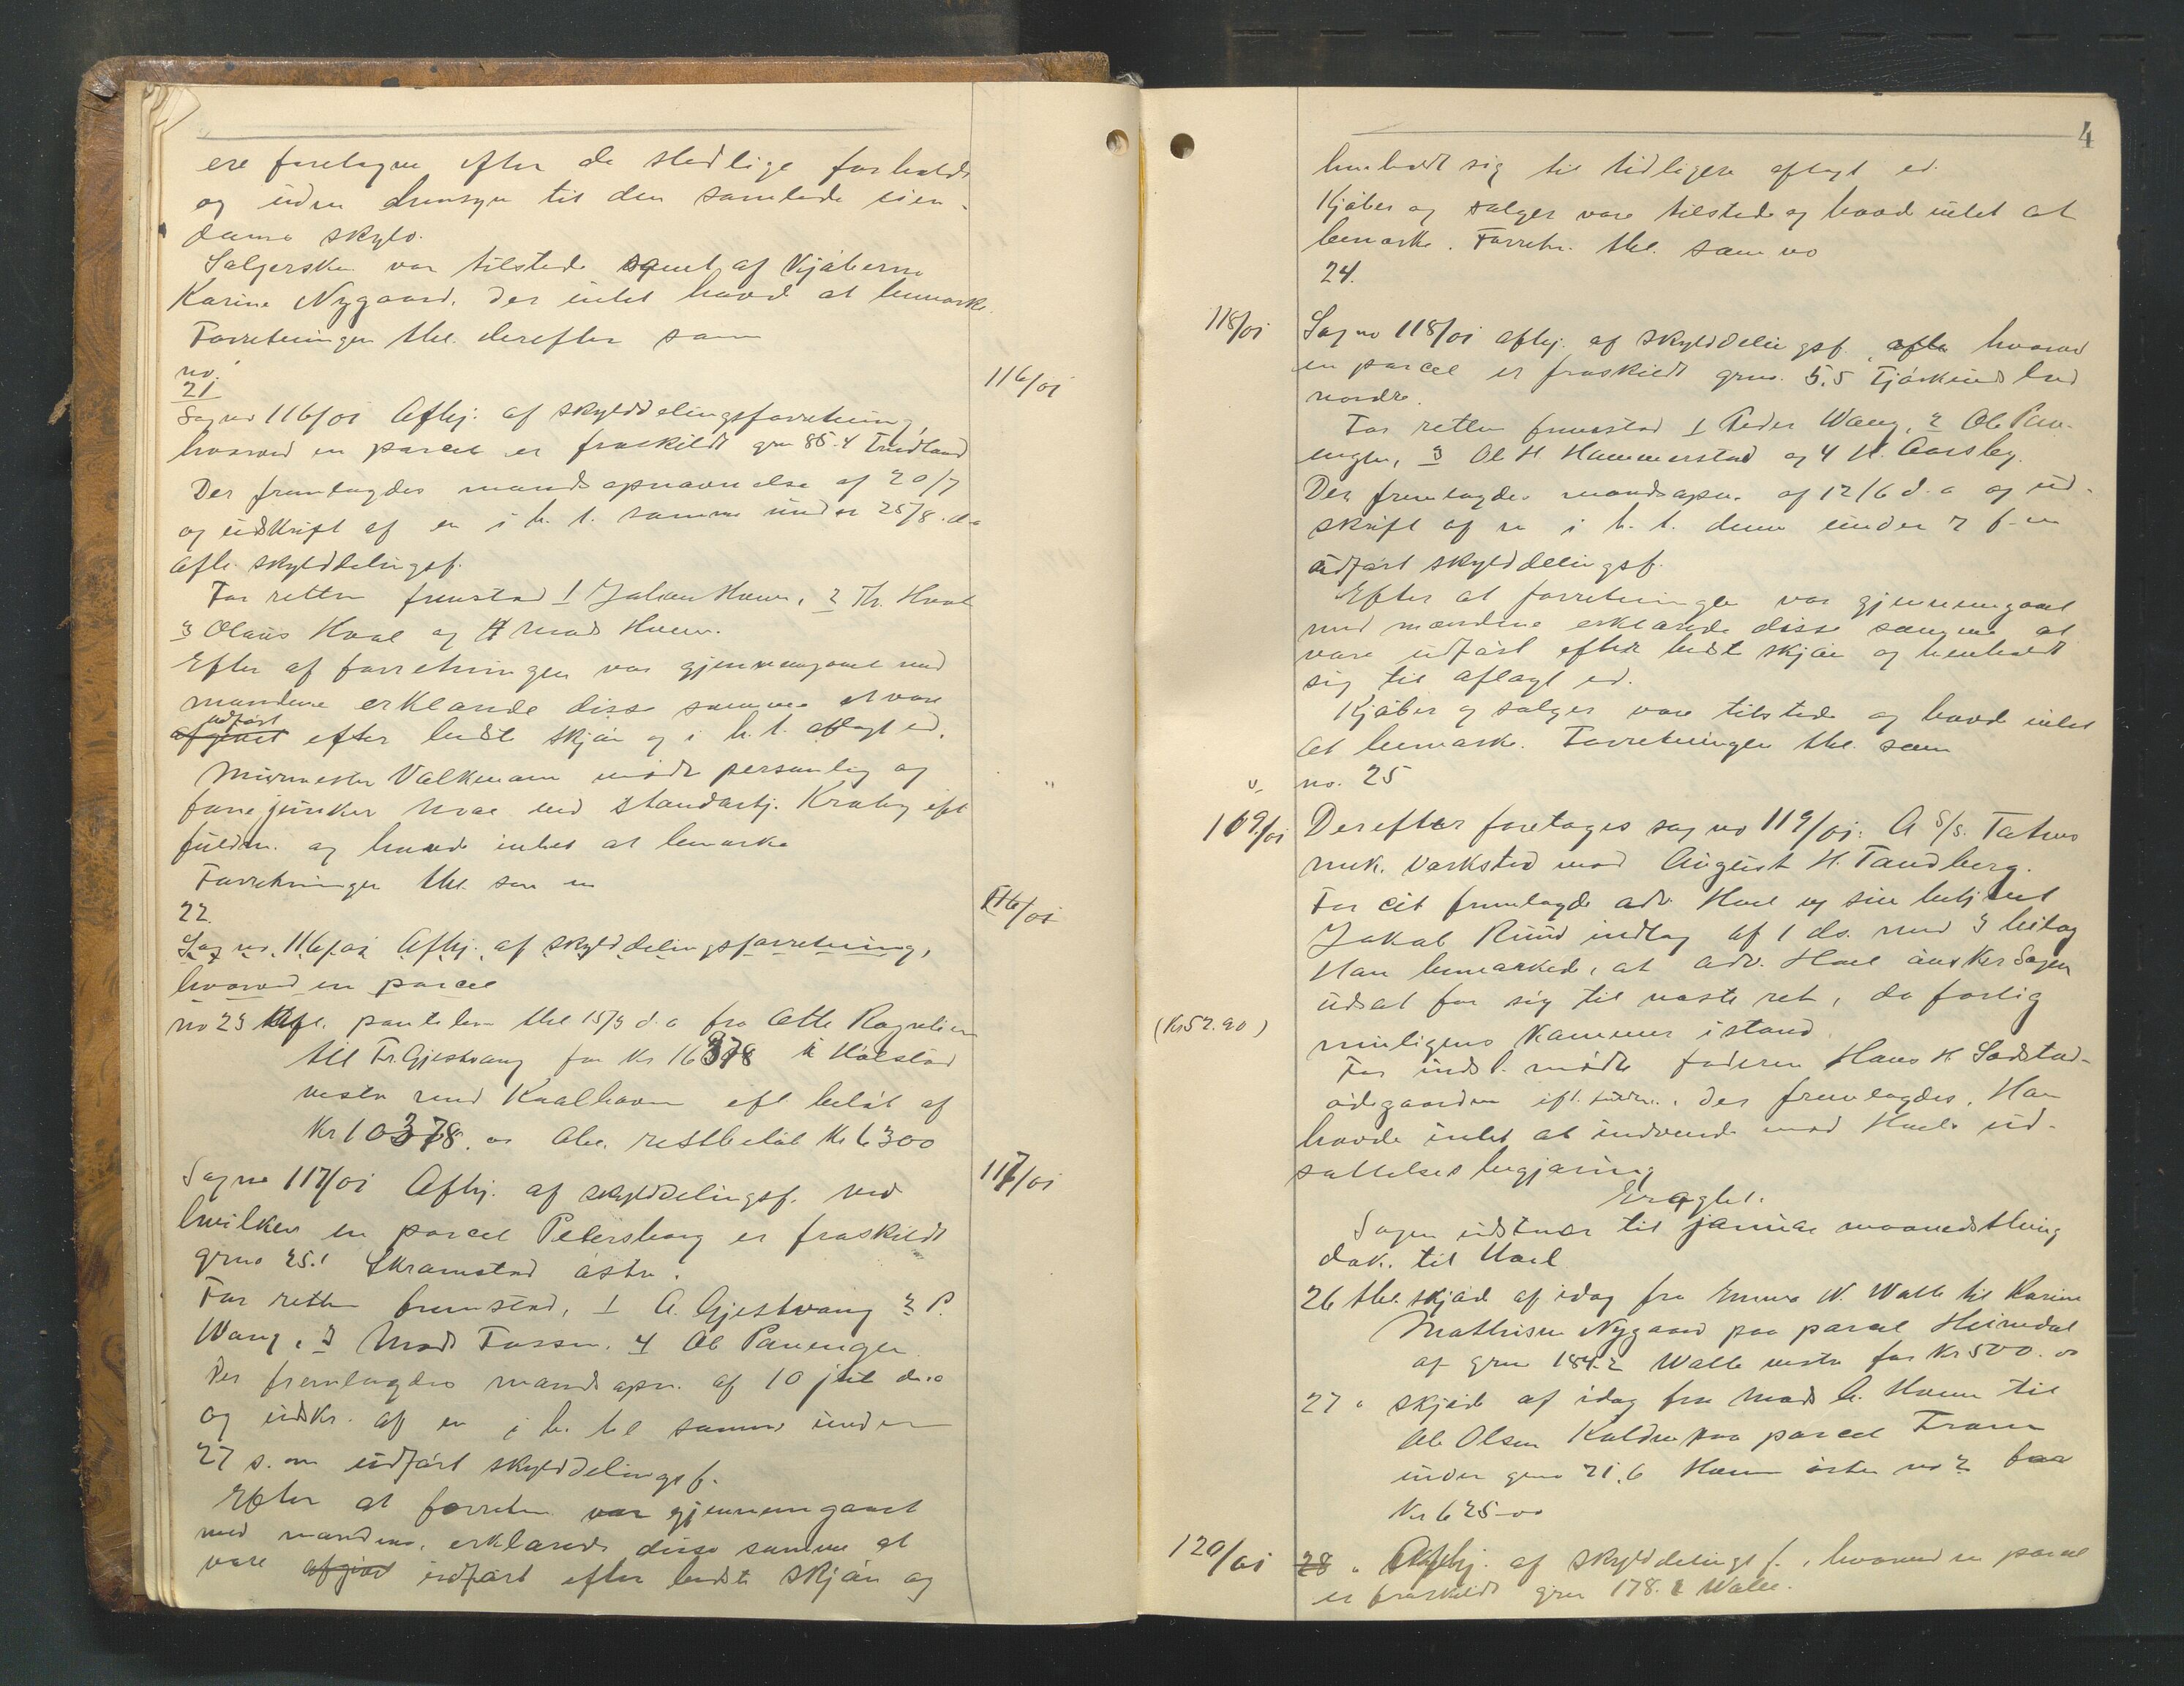 ere foretagne efter de stedlige forholde
og uden hensyn til den samlede eien-
doms skyld.
Sælgersken var tilstede samt af Kjøberne
Karine Nygaard, der intet havde at bemærke.
Forretningen thl. derefter som
no.
21
116/01
Sag no 116/01 Afhj. af skylddelingsforretning,
hvorved en parcel er fraskildt gno 85.4 Trudland
Der fremlagdes mandsopnævnelse af 20/7
og udskrift af en i h. t. samme under 25/8 d.a
afh. skylddelingsf.
For retten fremstod 1 Johan Huem, 2 Th. Hoel
3 Olaus Hoel og 4 Mads Huem.
Efter at forretningen var gjennemgaaet med
mændene erklærede disse samme at være
udført
afgivet efter bedste skjøn og i h. t. aflagt ed.
Murmester Volkmann mødte personlig og
fanejunker Moe ved standartj. Kraby eft
fuldm. og havde intet at bemærke
Forretningen thl. som no
22.
116/01
Sag no. 116/01 Afhj. af skylddelingsforretning,
hvorved en parcel
no 23 pantebrev thl 15/3 d.a fra Otte
til Fr. Gjestvang for Kr 16378 i Holstad
vestre med Kaalhaven eft. beløb af
Kr 10378.00 restbeløb Kr 6300
117/01
Sag no 117/01 Afhj. af skylddelingsf. ved
hvilken en parcel Petersborg er fraskildt
gno 25.1 Skramstad østre.
For retten fremstod, 1 A. Gjestvang 2 P.
Wang, 3 Mads Fossen. 4 Ole Pavengen
Der fremlagdes mandsopn. af 10 juli d.a
og udskr. af en i h. til samme under
27 s. m udført skylddelingsf.
Efter at forretn var gjennemgaaet
med mændene, erklærede disse samme at
være afgivet udført efter bedste skjøn og
4
henholdt sig til tidligere aflagt ed.
Kjøber og sælger vare tilstede og havde intet at
bemærke. Forretn. thl. som no
24.
118/01
Sag no 118/01 afhj. af skylddelingsf., efter hvorved
en parcel er fraskildt gno. 5.5 Tjørkindlud
nordre.
For retten fremstod 1 Peder Wang, 2 Ole Pav-
engen, 3 Ole H. Hammerstad og 4 H. Aarsby.
Der fremlagdes mandsopn. af 12/6 d. a og ud-
skrift af en i h. t. denne under 7 f. m
udført skylddelingsf.
Efter at forretningen var gjennemgaaet
med mændene erklærede disse samme at
være udført efter bedste skjøn og henholdt
sig til aflagt ed.
Kjøber og sælger vare tilstede og havde intet
at bemærke. Forretningen thl. som
no. 25
119/01
Derefter foretoges sag no 119/01. A S/S. Totens
mek. Værksted mod August H. Tandberg.
For cit fremlagde adv. Hoel og sin betjent
Jakob Ruud indlæg af 1 ds. med 3 bilag
Han bemærkede, at adv. Hoel ønsker Sagen
udsat for sig til næste ret, da forlig
muligens kommer istand.
(Kr 52.90)
For indst. mødte faderen Hans H. Sødstad-
ødegaarden ift. fuldm., der fremlagdes. Han
havde intet at indvende mod Hoels ud-
sættelses begjæring
Eragtet.
Sagen udstaar til januar maanedsthing
dok. til Hoel
26 thl. skjøde af idag fra Emma N. Walle til Karine
Mathisen Nygaard paa parcel Heimdal
af gno 184.2 Walle vestre for Kr 500.00
27 " skjøde af idag fra Mads C. Huem til
Ole Olsen Kaldre paa parcel Fram
under gno 21.6 Huem østre no 2 for
Kr 625-00
120/01
28 " Afhj. af skylddelingsf., hvorved en parcel
er fraskildt gno 178.2 Walle.